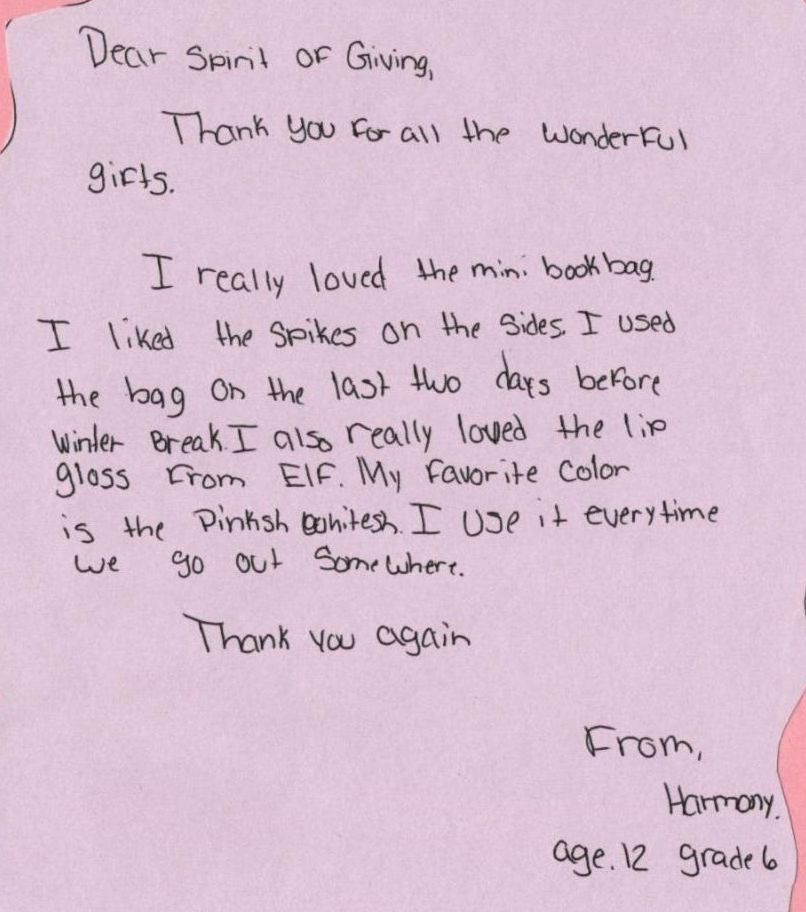 Dear Spirit of Giving,
Thank you for all the wonderful
gifts.
I really loved the mini bookbag.
I liked the spikes on the sides. I used
the bag on the last two days before
winter break. I also really loved the lip
gloss from Elf. My favorite color
is the pinksh whitesh. I use it everytime
we go out somewhere.
Thank you again
From,
Harmony.
age. 12 grade 6